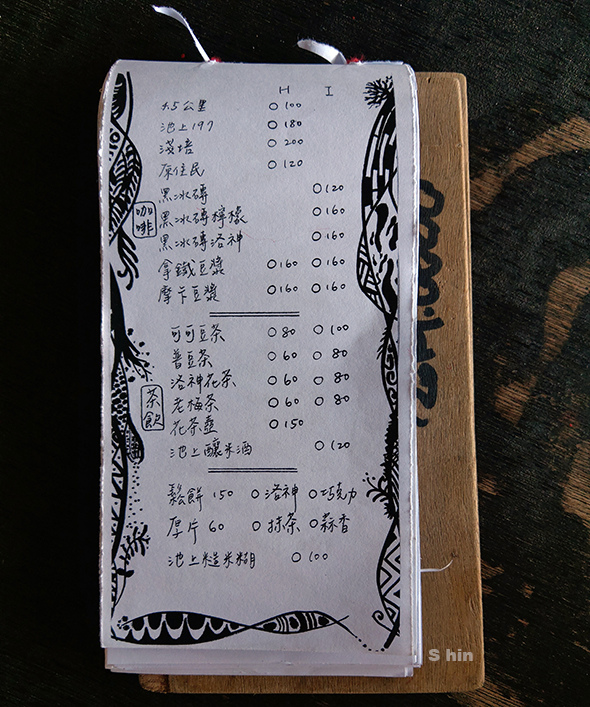 H I
4.5公里 ○100
池上197 ○180
淺培 ○200
原住民 ○120
咖啡
黑冰磚 ○120
黑冰磚檸檬 ○160
黑冰磚洛神 ○160
拿鐵豆漿 ○160 ○160
摩卡豆漿 ○160 ○160
可可豆茶 ○80 ○100
普豆茶 ○60 ○80
洛神花茶 ○60 ○80
茶飲
老梅茶 ○60 ○80
花茶壺 ○150
池上釀米酒 ○120
鬆餅 150 ○洛神 ○巧克力
厚片 60 ○抹茶 ○蒜香
池上糙米糊 ○100
S hin